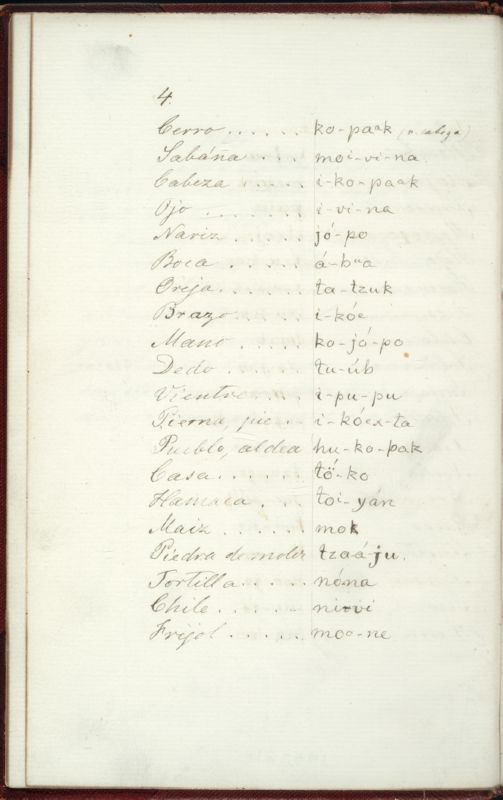 4.
Cerro . . . . . . ko-paak (v. cabeza)
Sabána . . . . moi-vi-na
Cabeza . . . . i-ko-paak
Ojo . . . . . . . i-vi-na
Nariz . . . . . jó-po
Boca . . . . . á-bua
Oreja . . . . . ta-tzuk
Brazo . . . . . i-kóe
Mano . . . . . ko-jó-po
Dedo . . . . . tu-úb
Vientre . . . . i-pu-pu
Pierna, pie . . i-kóex-ta
Pueblo, aldea hu-ko-pak
Casa . . . . . . tö-ko
Hamaca . . . toi-yán
Maiz . . . . . . mok
Piedra de moler tzaáju.
Tortilla . . . . . nóna
Chile . . . . . . ni-vi
Frijol . . . . . moo-ne